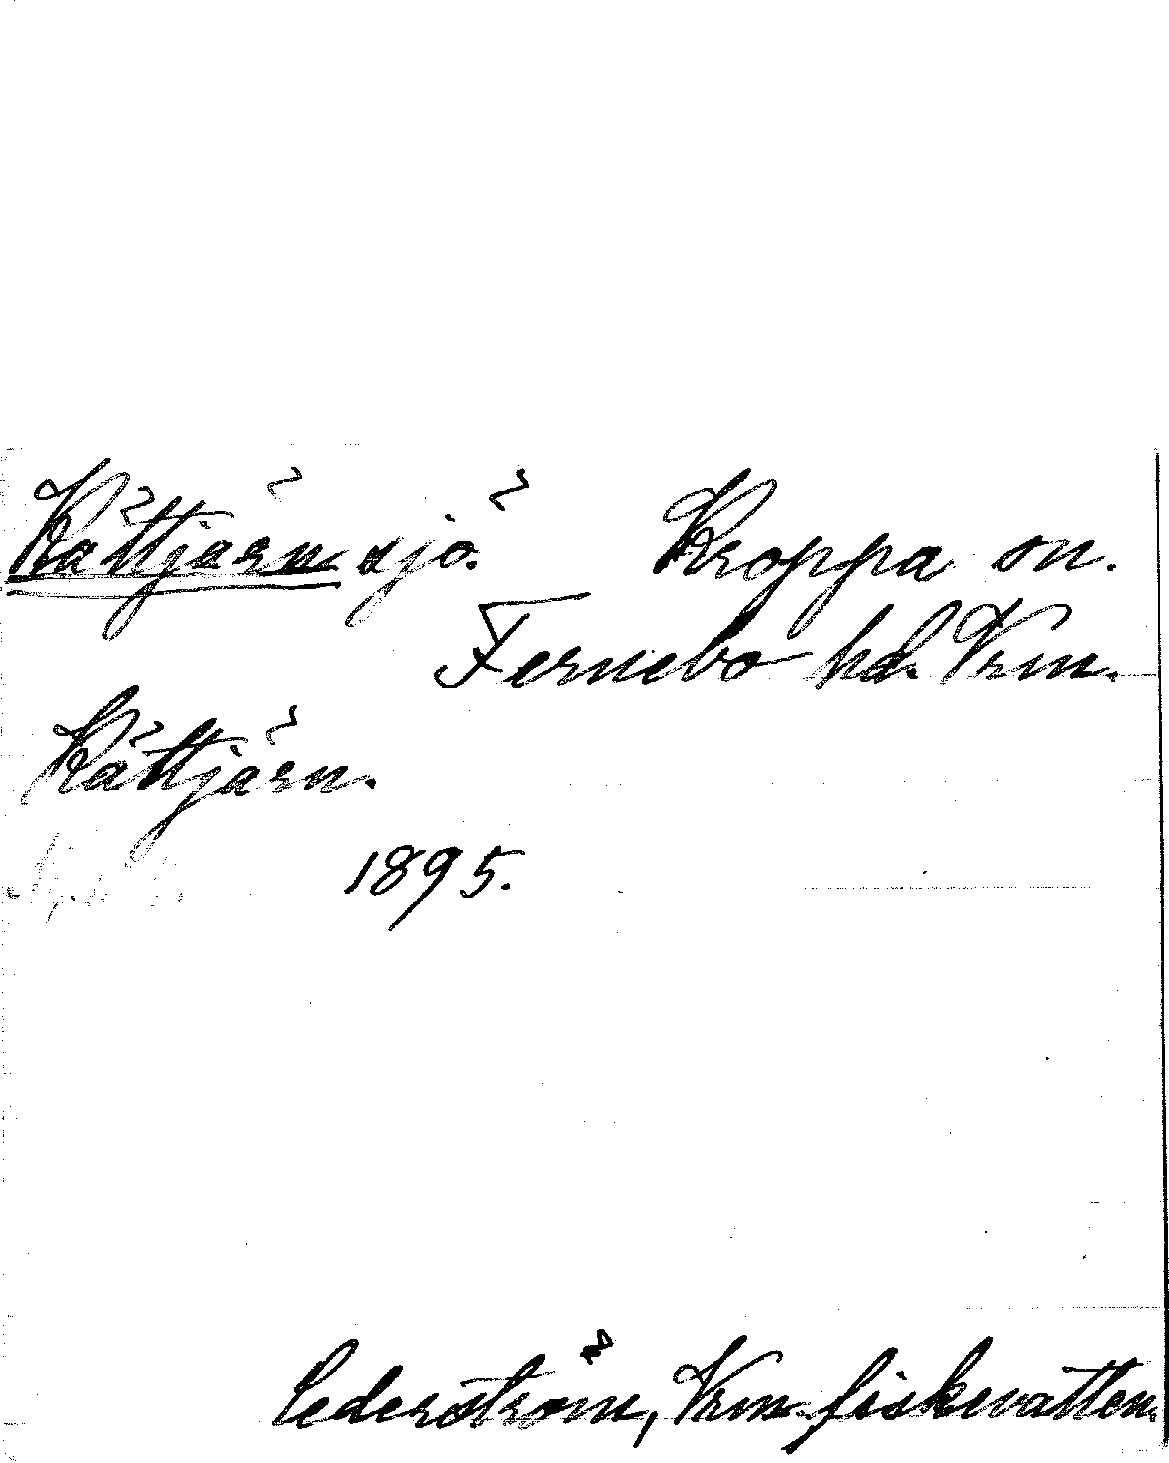 Kättjärn sjö. Kroppa sn.
Fernebo hd. Vrm.
Kättjärn.
1895.
Cederström, Vrm. fiskevatten.